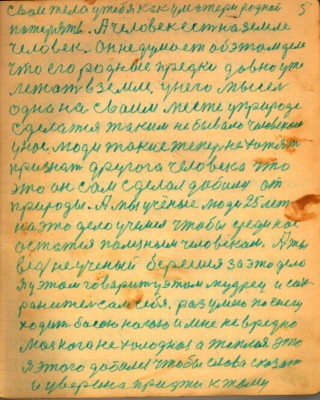 5
свои тела у тебя как у матери родной
потерять. А человек есть на земле
человек. Он не думает об этом деле
что его родные предки давно уже
лежат в земле. у него мысел
одна на своим месте у природе
сделатся таким не бывало человеком
у нас люди такие теперь не хотят
признат другога человека что
это он сам сделал добился от
природы. А мы учёные люди 25 лет
на это дело учимся чтобы
остатся полезным человекам. А ты
ведь не ученый берешся за это дело
я у этом говарит у этом мудрец и сах-
ранител сам себя. разумно по снегу
ходит босою ногою и мне не вредно
моя нога не холодная а теплая это
я этого добился чтобы слова сказат
и уверена придти к тому